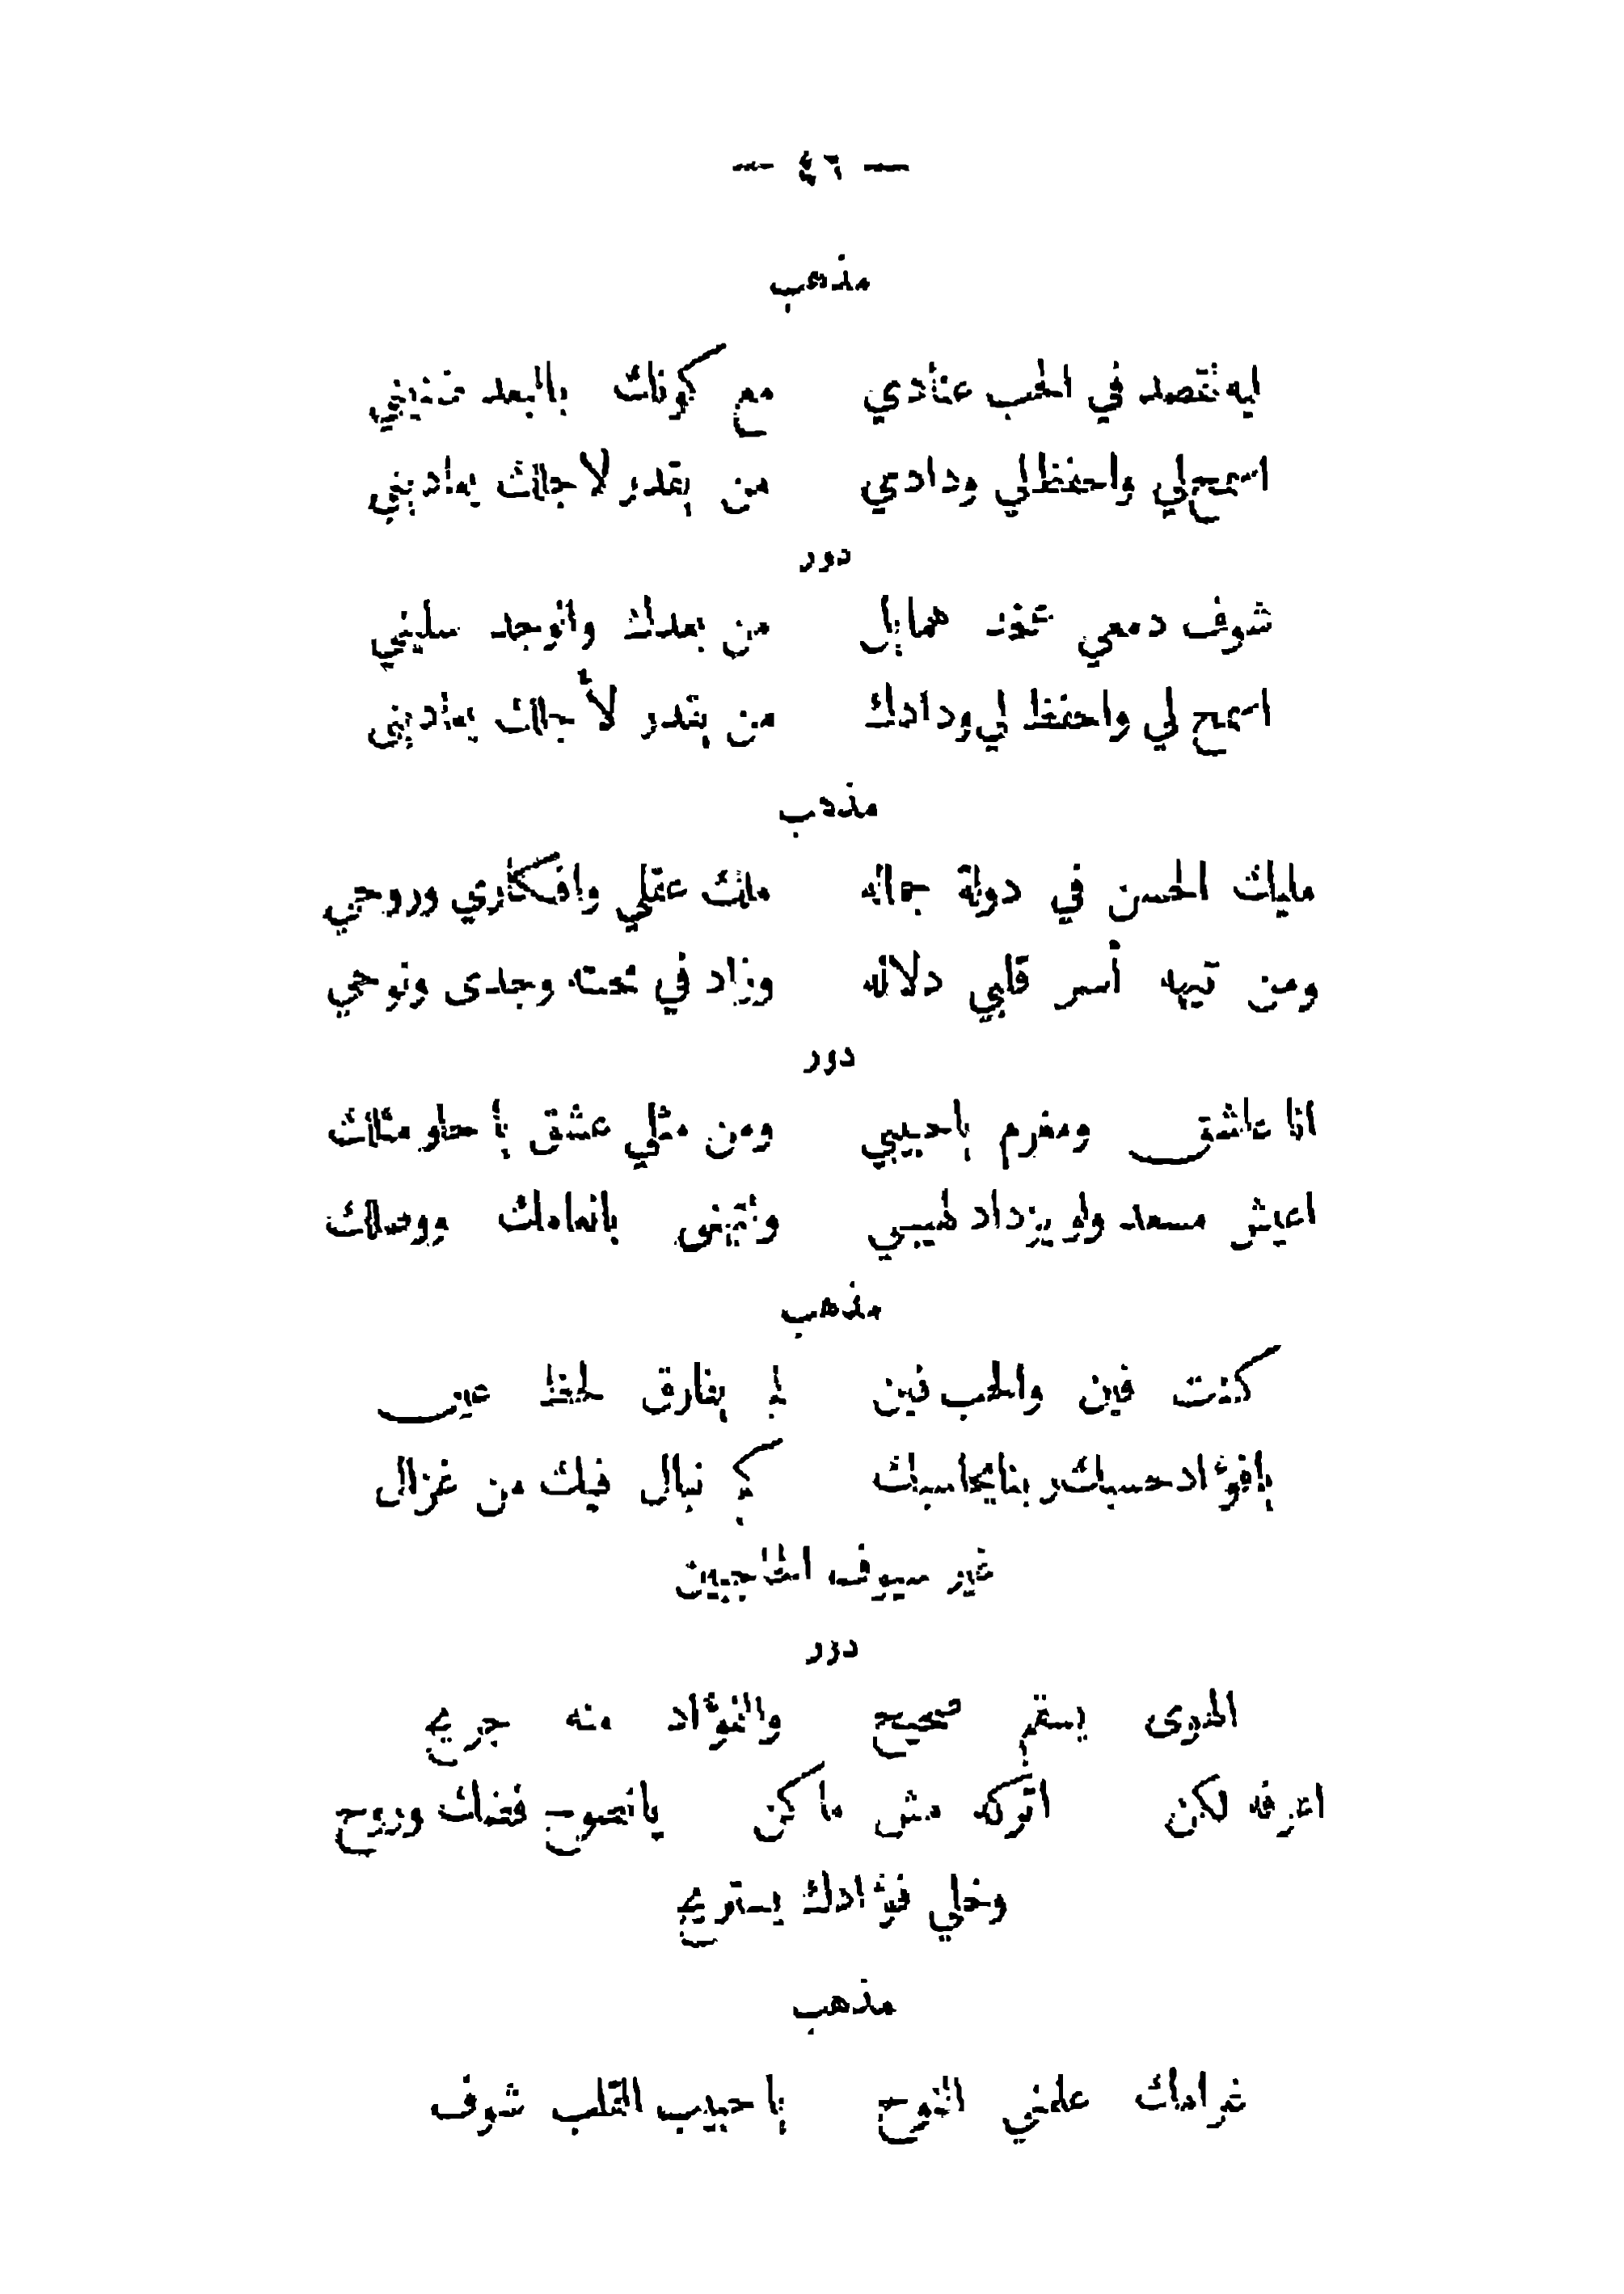 — ٤٦ —
مذهب
ليه نقصد في الحب عنادي مع كونك بالبعد تفنيني
اسمح لي واحفظ لي ودادي من يقدر لاجلك يعاديني
دور
شوف دمعي عَ خد همايل من بعدك والوجد سليني
اسمح لي واحفظ لي ودادك من يقدر لأجلك يعاديني
مذهب
مليك الحسن في دولة جماله ملك عقلي وافكاري وروحي
ومن تيهه أسر قلبي دلاله وزاد في وجدى ونوحي
دور
انا عاشق ومغرم ياحبيبي ومن مثلي عشق يا حلو مثلك
اعيش مسعد ولو يزداد لهيبي ونتهنى بانعامك ووصلك
مذهب
كنت فين والحب فين لم يفارق لحظ عين
يافؤاد حسبك ربنايحاسبك كم نبال فيك من غزال
غير سيوف الحاجبين
دور
الهوى يسقم صحيح والفؤاد منه جريح
اعرفه لكن اتركه مش ماكن يانصوح فضك وروح
وخلي فؤادك يستريح
مذهب
غرامك علمني النوح يا حبيب القلب شوف